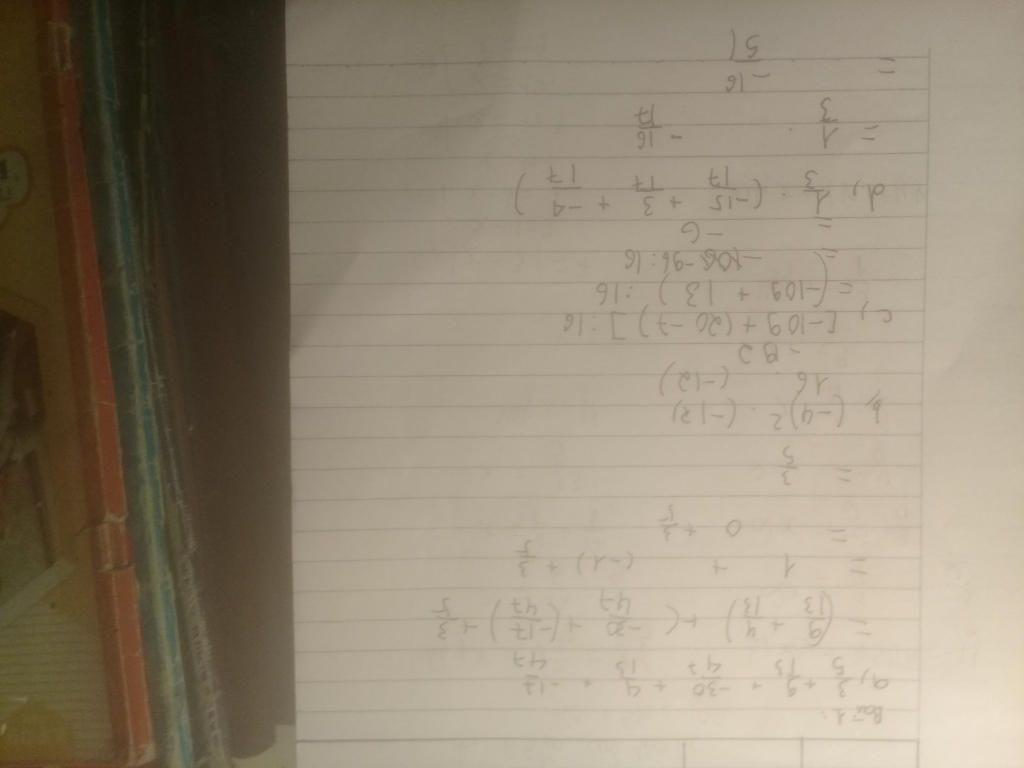 Bài 1:
a, 3/5 + 9/13 + -30/47 + 4/13 + -17/47
= (9/13 + 4/13) + (-30/47 + (-17/47) + 3/5
= 1 + (-1) + 3/5
= 0 + 3/5
= 3/5
b, (-4)² . (-12)
16 . (-12)
[-109 + (20 - 7)] : 16
c,
= (-109 + 13) : 16
= -96 : 16
= -6
d, 1/3 . (-15/17 + 3/17 + -4/17)
= 1/3 . -16/17
= -16/51